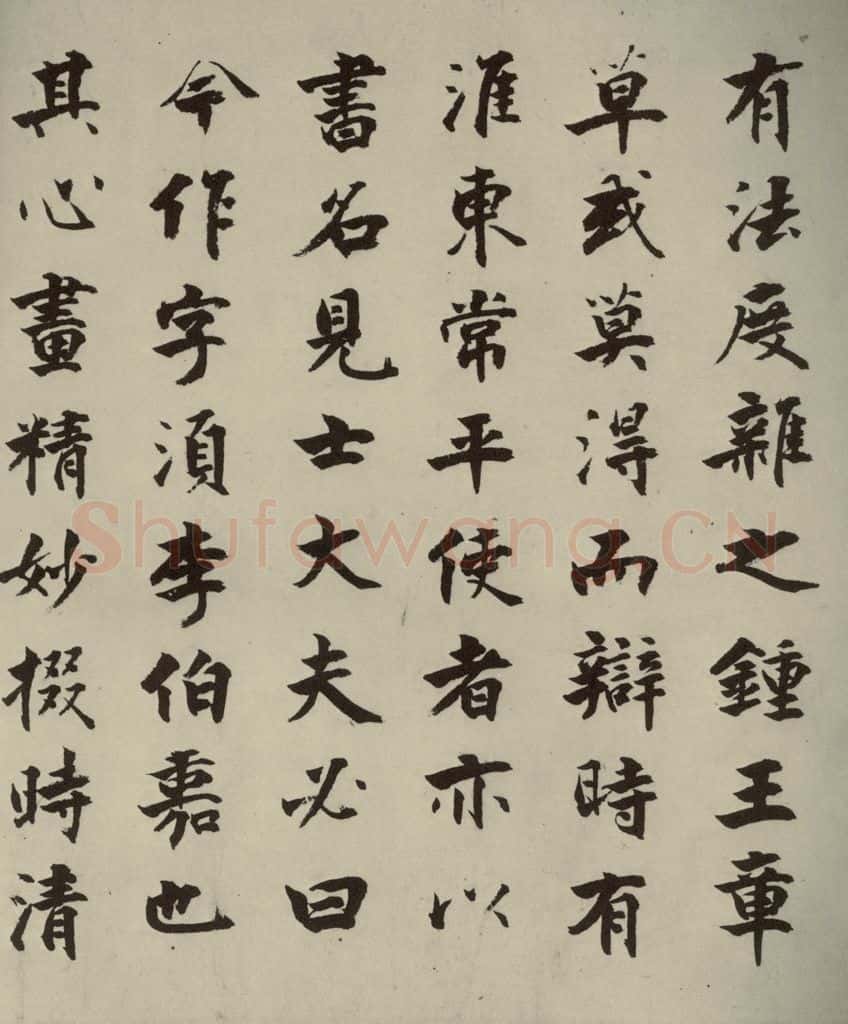 有法度雜之鍾王章
草或莫得而辯時有
淮東常平使者亦以
書名見士大夫必曰
今作字須李伯嘉也
其心畫精妙掇時清
Shufawang.CN